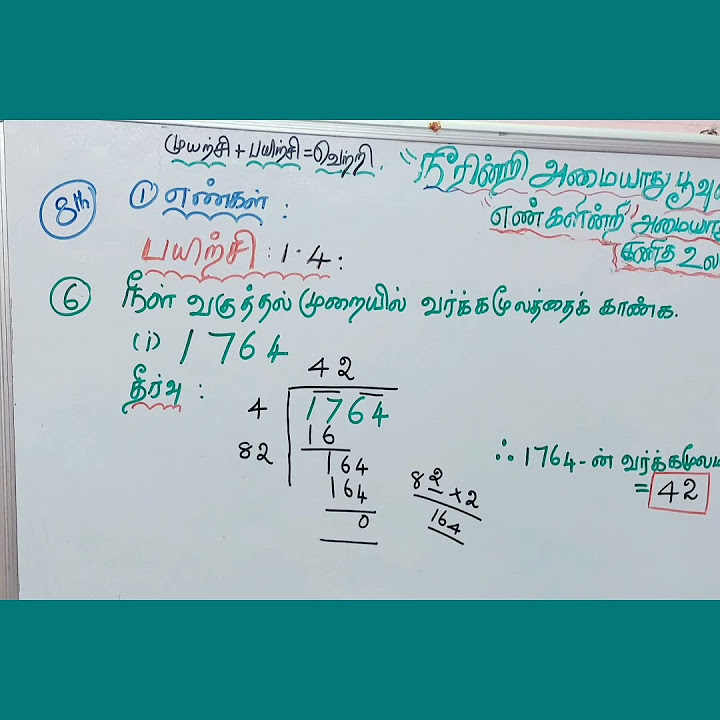 முயற்சி + பயிற்சி = வெற்றி.
"நீரின்றி அமையாது
"எண்களின்றி"
கணித
8th ① எண்கள் :
பயிற்சி : 1.4 :
⑥ நீள் வகுத்தல் முறையில் வர்க்கமூலத்தைக் காண்க.
(i) 1764
தீர்வு :
42
4 1764
16
82 164
164
0
82 × 2
164
∴ 1764-ன்
= 42